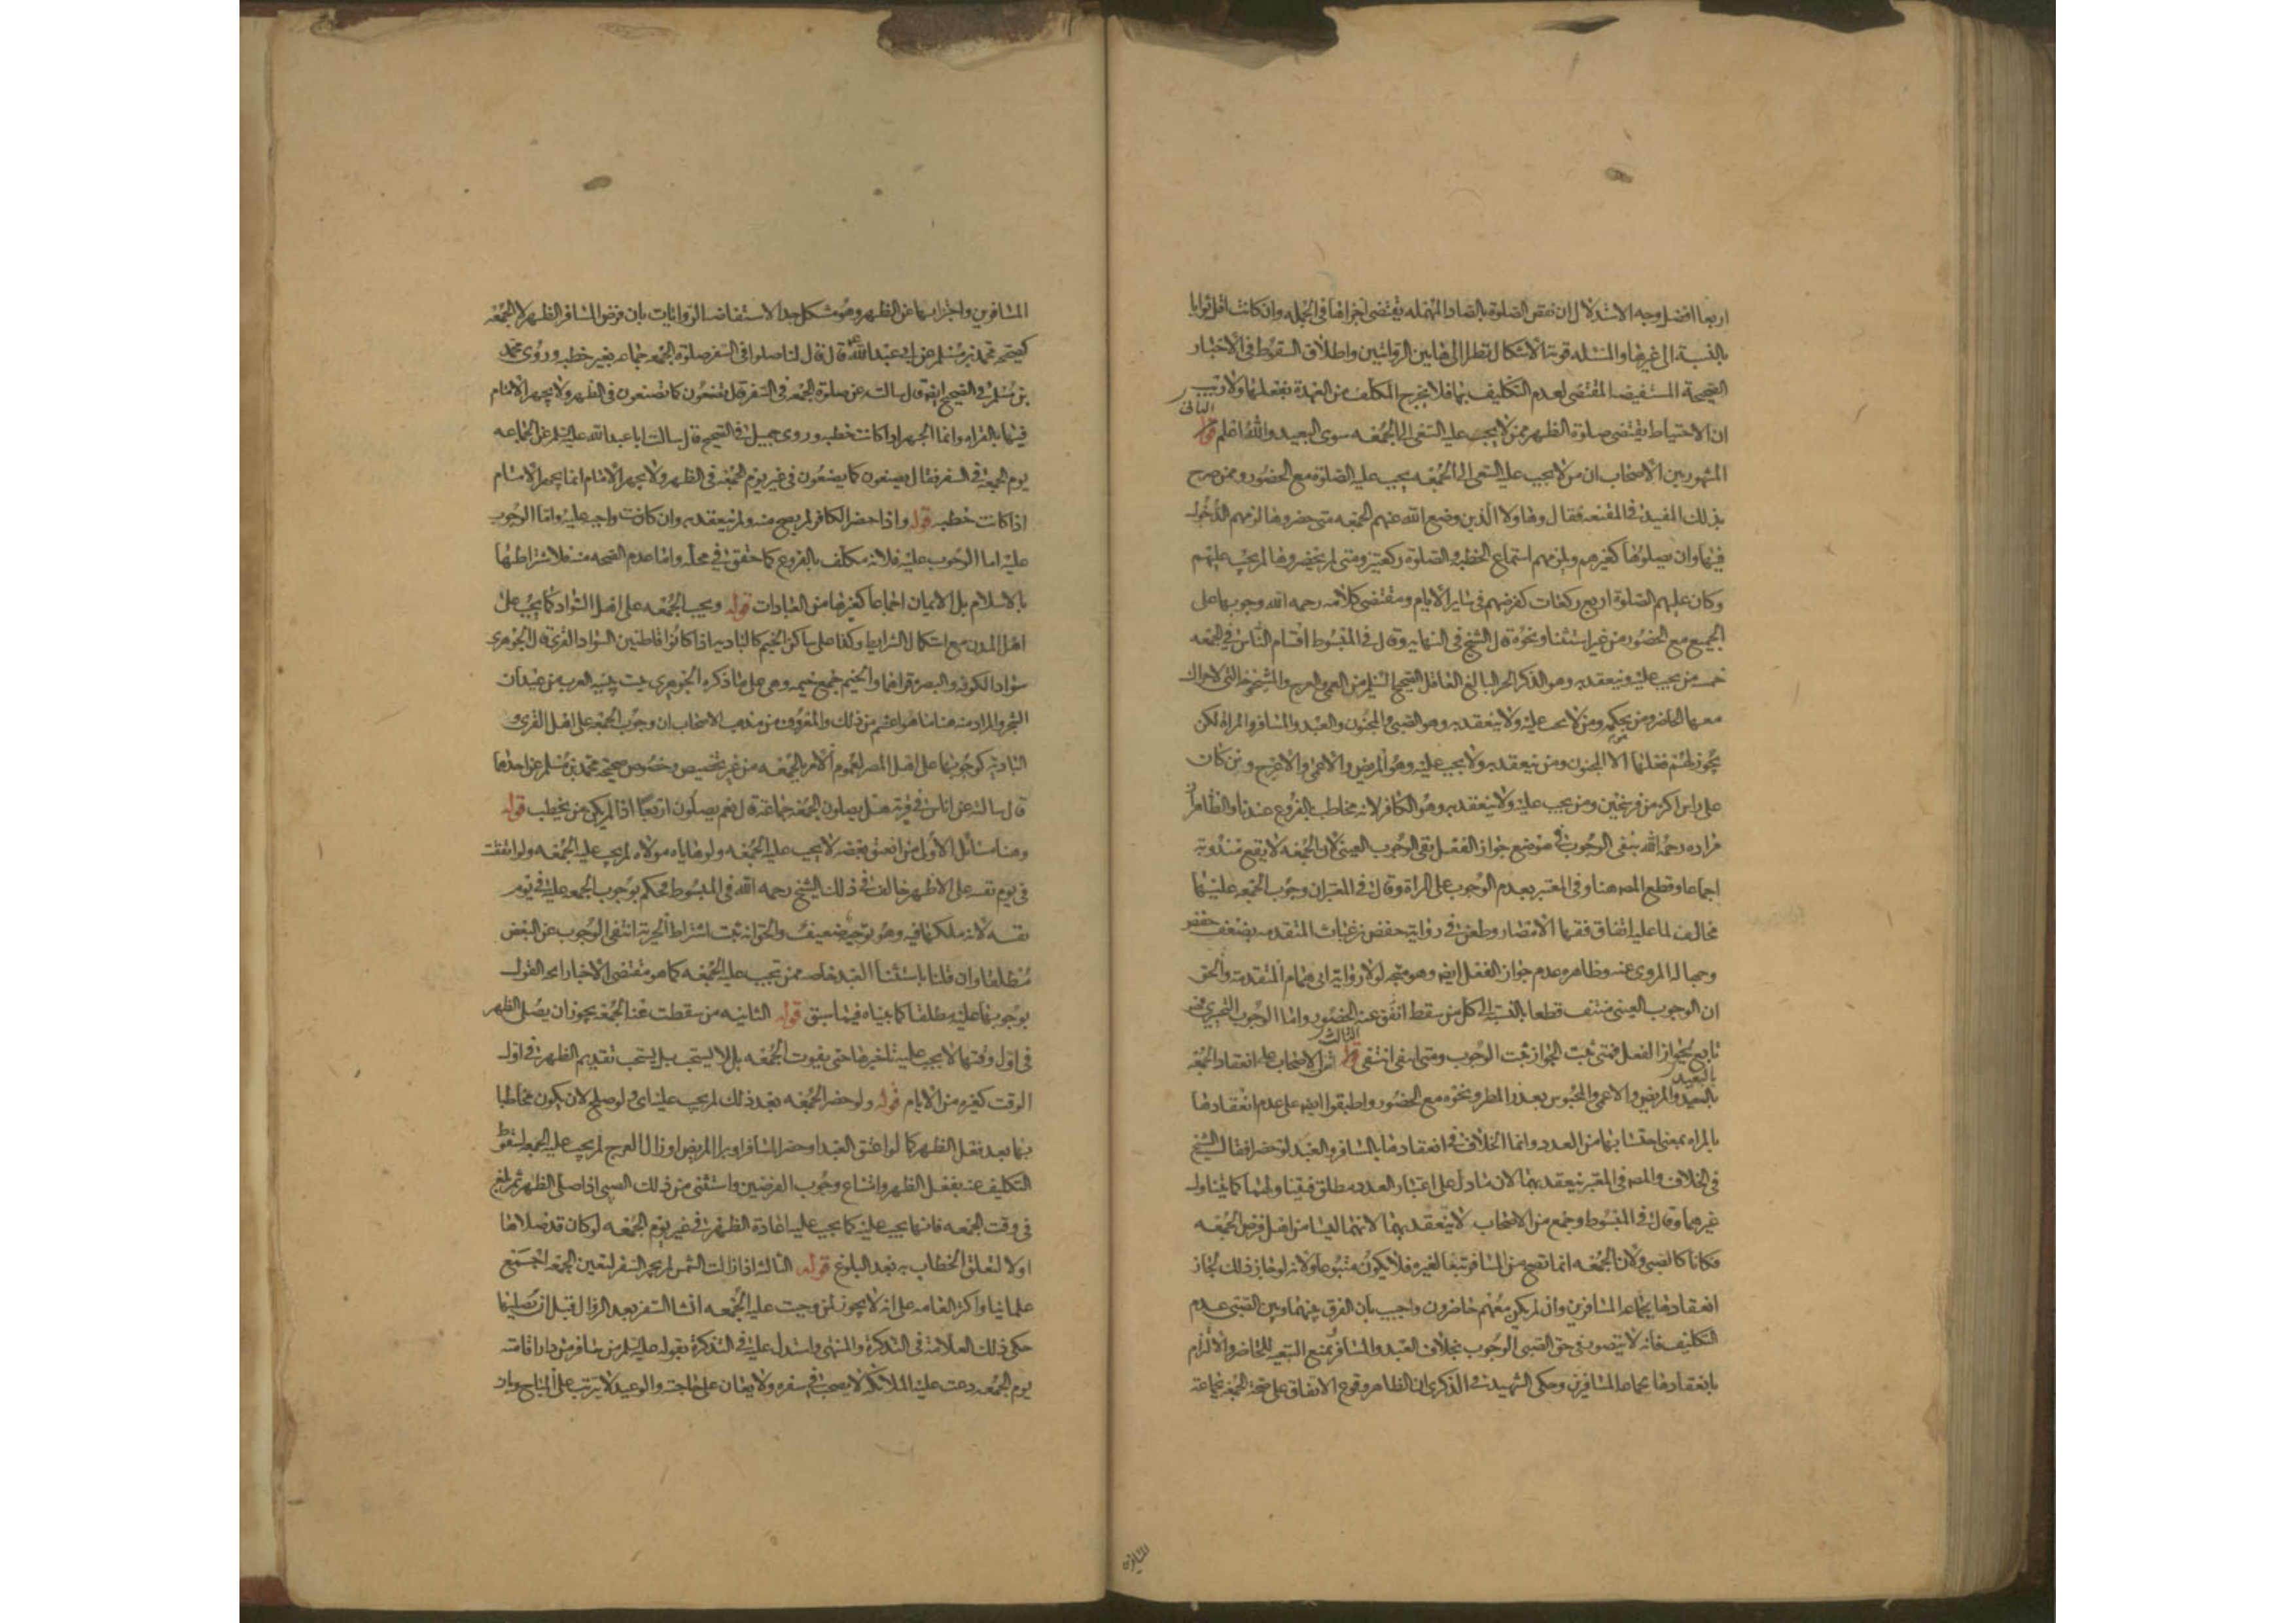 اربعا افضل وجه الاستدلال ان نقص الصلوة بالصاد المهمله يقتضى اجزاها فى الجمله وان كانت اقل ثوابا
بالنسبة الى غيرها والمسئله قوية الاشكال نظرا الى هاتين الروايتين واطلاق السقوط فى الاخبار
الصحيحة المستفيضه المقتضى لعدم التكليف بها فلا يخرج المكلف من العهدة بفعلها ولا ريب
الثانى
ان الاحتياط يقتضى صلوة الظهر ممن لا يجب عليه السعى الى الجمعه سوى البعيد والله اعلم قوله
المشهور بين الاصحاب ان من لا يجب عليه السعى الى الجمعه يجب عليه الصلوة مع الحضور وممن صرح
بذلك المفيد فى المقنعه فقال وهاولا الذين وضع الله عنهم الجمعه متى حضروها لزمهم الدخول
فيها وان يصلوها كغيرهم ويلزمهم استماع الخطبه والصلوة ركعتين ومتى لم يحضروها لم يجب عليهم
وكان عليهم الصلوة اربع ركعات كفرضهم فى ساير الايام ومقتضى كلامه رحمه الله وجوبها على
الجميع مع الحضور من غير استثنا ونحوه قال الشيخ فى النهايه وقال فى المبسوط اقسام الناس فى الجمعه
خمسه من يجب عليه وينعقد به وهو الذكر الحر البالغ العاقل الصحيح السليم من العمى والعرج والشيخوخه التى لا حراك
معها الحاضر ومن بحكمه ومن لا يجب عليه ولا ينعقد به وهو الصبى والمجنون والعبد والمسافر والمراة لكن
يجوز لهم فعلها الا المجنون ومن ينعقد به ولا يجب عليه وهو المريض والاعمى والاعرج ومن كان
على راس اكثر من فرسخين ومن يجب عليه ولا ينعقد به وهو الكافر لانه مخاطب بالفروع عندنا والظاهر ان
مراده رحمه الله بنفى الوجوب فى موضع جواز الفعل نفى الوجوب العينى لان الجمعه لا يقع مندوبة
اجماعا وقطع المصه هنا وفى المعتبر بعدم الوجوب على المراة وقال فى المعتبر ان وجوب الجمعه عليها
مخالف لما عليه اتفاق فقها الامصار وطعن فى رواية حفص بن غياث المتقدمه بضعف حفص
وجهالة المروى عنه وظاهره عدم جواز الفعل ايضه وهو متجه لولا رواية ابى همام المتقدمة والحق
ان الوجوب العينى منتف قطعا بالنسبة الى كل من سقط عنه الحضور واما الوجوب التخييرى فهو
الثالث
تابع لجواز الفعل فمتى ثبت الجواز ثبت الوجوب ومتى انتفى انتفى قوله اتفق الاصحاب على انعقاد الجمعه
بالبعيد
بالبعيد والمريض والاعمى والمحبوس بعذر المطر ونحوه مع الحضور واطبقوا ايضه على عدم انعقادها
بالمراه بمعنى احتسابها من العدد وانما الخلاف فى انعقادها بالمسافر والعبد لو حضرا فقال الشيخ
فى الخلاف والمصه فى المعتبر ينعقد بهما لان ما دل على اعتبار العدد مطلق فيتناولهما كما يتناول
غيرهما وقال فى المبسوط وجمع من الاصحاب لا ينعقد بهما لانهما ليسا من اهل فرض الجمعه
فكانا كالصبى ولان الجمعه انما تصح من المسافر تبعا لغيره فلا يكون متبوعا ولانه لو جاز ذلك لجاز
انعقادها بجماعه المسافرين وان لم يكن معهم حاضرون واجيب بان الفرق بينهما وبين الصبى عدم
التكليف فانه لا يتصور فى حق الصبى الوجوب بخلاف العبد والمسافر ويمنع التبعيه للحاضر والالتزام
بانعقادها بجماعه المسافرين وحكى الشهيد فى الذكرى ان الظاهر وقوع الاتفاق على صحة الجمعه بجماعة
المسافرين
المسافرين واجزايها عن الظهر وهو مشكل جدا لاستفاضه الروايات بان فرض المسافر الظهر لا الجمعه
كصحيحه محمد بن مسلم عن ابى عبد الله ع قال قال لنا صلوا فى السفر صلوة الجمعه جماعه بغير خطبه وروى محمد
بن مسلم فى الصحيح ايضه قال سالته عن صلوة الجمعه فى السفر قال تصنعون كما تصنعون فى الظهر ولا يجهر الامام
فيها بالقراه وانما الجهر اذا كانت خطبه وروى جميل فى الصحيح قال سالت ابا عبد الله عليه السلم عن الجماعه
يوم الجمعه فى السفر فقال يصنعون كما يصنعون فى غير يوم الجمعه فى الظهر ولا يجهر الامام انما يجهر الامام
اذا كانت خطبه قوله واذا حضر الكافر لم يصح منه ولم ينعقد به وان كانت واجبه عليه واما الوجوب
عليه اما الوجوب عليه فلانه مكلف بالفروع كما حقق فى محله واما عدم الصحه منه فلاشتراطها
بالاسلام بل الايمان اجماعا كغيرها من العبادات قوله ويجب الجمعه على اهل السواد كما يجب على
اهل المدن مع استكمال الشرايط وكذا على ساكن الخيم كالباديه اذا كانوا قاطنين السواد القرى قال الجوهرى
سواد الكوفه والبصرة قراهما والخيم جمع خيمه وهى على ما ذكره الجوهرى بيت يبنيه العرب من عيدان
الشجر والمراد منه هنا ما هو اعم من ذلك والمعروف من مذهب الاصحاب ان وجوب الجمعه على اهل القرى
الباديه كوجوبها على اهل المصر لعموم الامر بالجمعه من غير تخصيص وخصوص صحيحه محمد بن مسلم عن احدهما
قال سالته عن اناس فى قرية هل يصلون الجمعه جماعة قال نعم يصلون اربعا اذا لم يكن من يخطب قوله
وهنا مسائل الاولى من انعتق بعضه لا يجب عليه الجمعه ولو هاياه مولاه لم يجب عليه الجمعه ولو اتفقت
فى يوم نفسه على الاظهر خالف فى ذلك الشيخ رحمه الله فى المبسوط فحكم بوجوب الجمعه عليه فى يوم
نفسه لانه ملكها فيه وهو توجيه ضعيف والحق انه ثبت اشتراط الحرية انتفى الوجوب عن البعض
مطلقا وان قلنا باستثنا العبد خاصه ممن تجب عليه الجمعه كما هو مقتضى الاخبار اتجه القول
بوجوبها عليه مطلقا كما بيناه فيما سبق قوله الثانيه من سقطت عنه الجمعه يجوز ان يصلى الظهر
فى اول وقتها لا يجب عليه تاخيرها حتى يفوت الجمعه بل لا يستحب بل يستحب تقديم الظهر فى اول
الوقت كغيره من الايام قوله ولو حضر الجمعه بعد ذلك لم يجب عليه اى ولو صلح لان يكون مخاطبا
بها بعد فعل الظهر كما لو اعتق العبد او حضر المسافر او برا المريض او زال العرج لم يجب عليه الجمعه لسقوط
التكليف عنه بفعل الظهر وامتناع وجوب الفرضين واستثنى من ذلك الصبى اذا صلى الظهر ثم بلغ
فى وقت الجمعه فانها يجب عليه كما يجب عليه اعادة الظهر فى غير يوم الجمعه لو كان قد صلاها
اولا لتعلق الخطاب به بعد البلوغ قوله الثالثه اذا زالت الشمس لم يجز السفر لتعين الجمعه اجمع
علماؤنا واكثر العامه على انه لا يجوز لمن وجبت عليه الجمعه انشا السفر بعد الزوال قبل ان يصليها
حكى ذلك العلامة فى التذكرة والمنتهى واستدل عليه فى التذكرة بقوله عليه السلم من سافر من دار اقامته
يوم الجمعه دعت عليه الملائكه لا يصحب فى سفره ولا يعان على حاجته والوعيد لا يترتب على المباح وبان